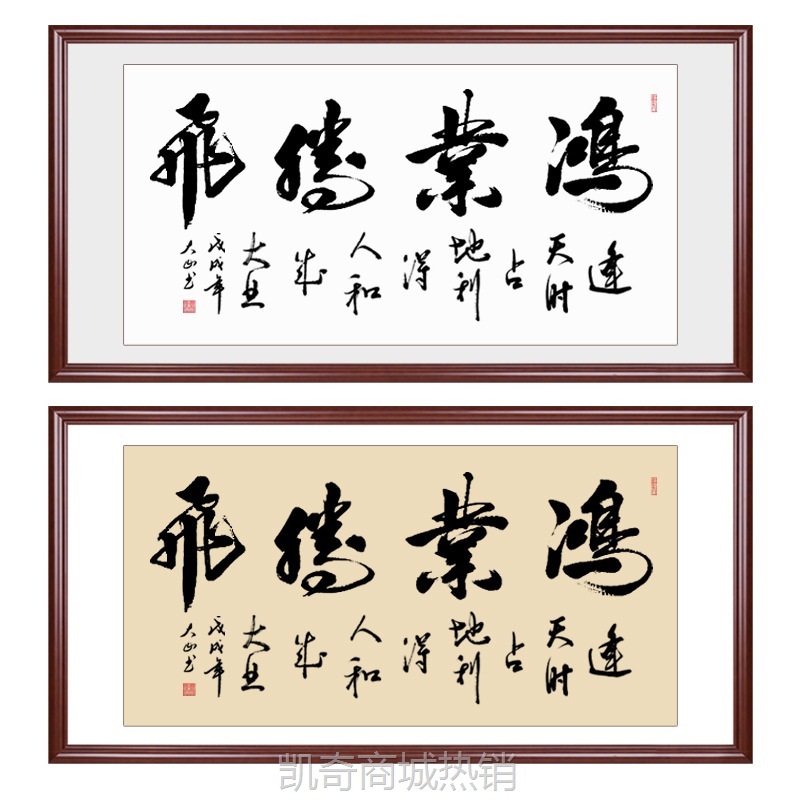 鴻業腾飛
逢
天时
占
地利
得
人和
成
大业
戊戌年
大山书
鴻業腾飛
逢
天时
占
地利
得
人和
成
大业
戊戌年
大山书
凯奇商城热销